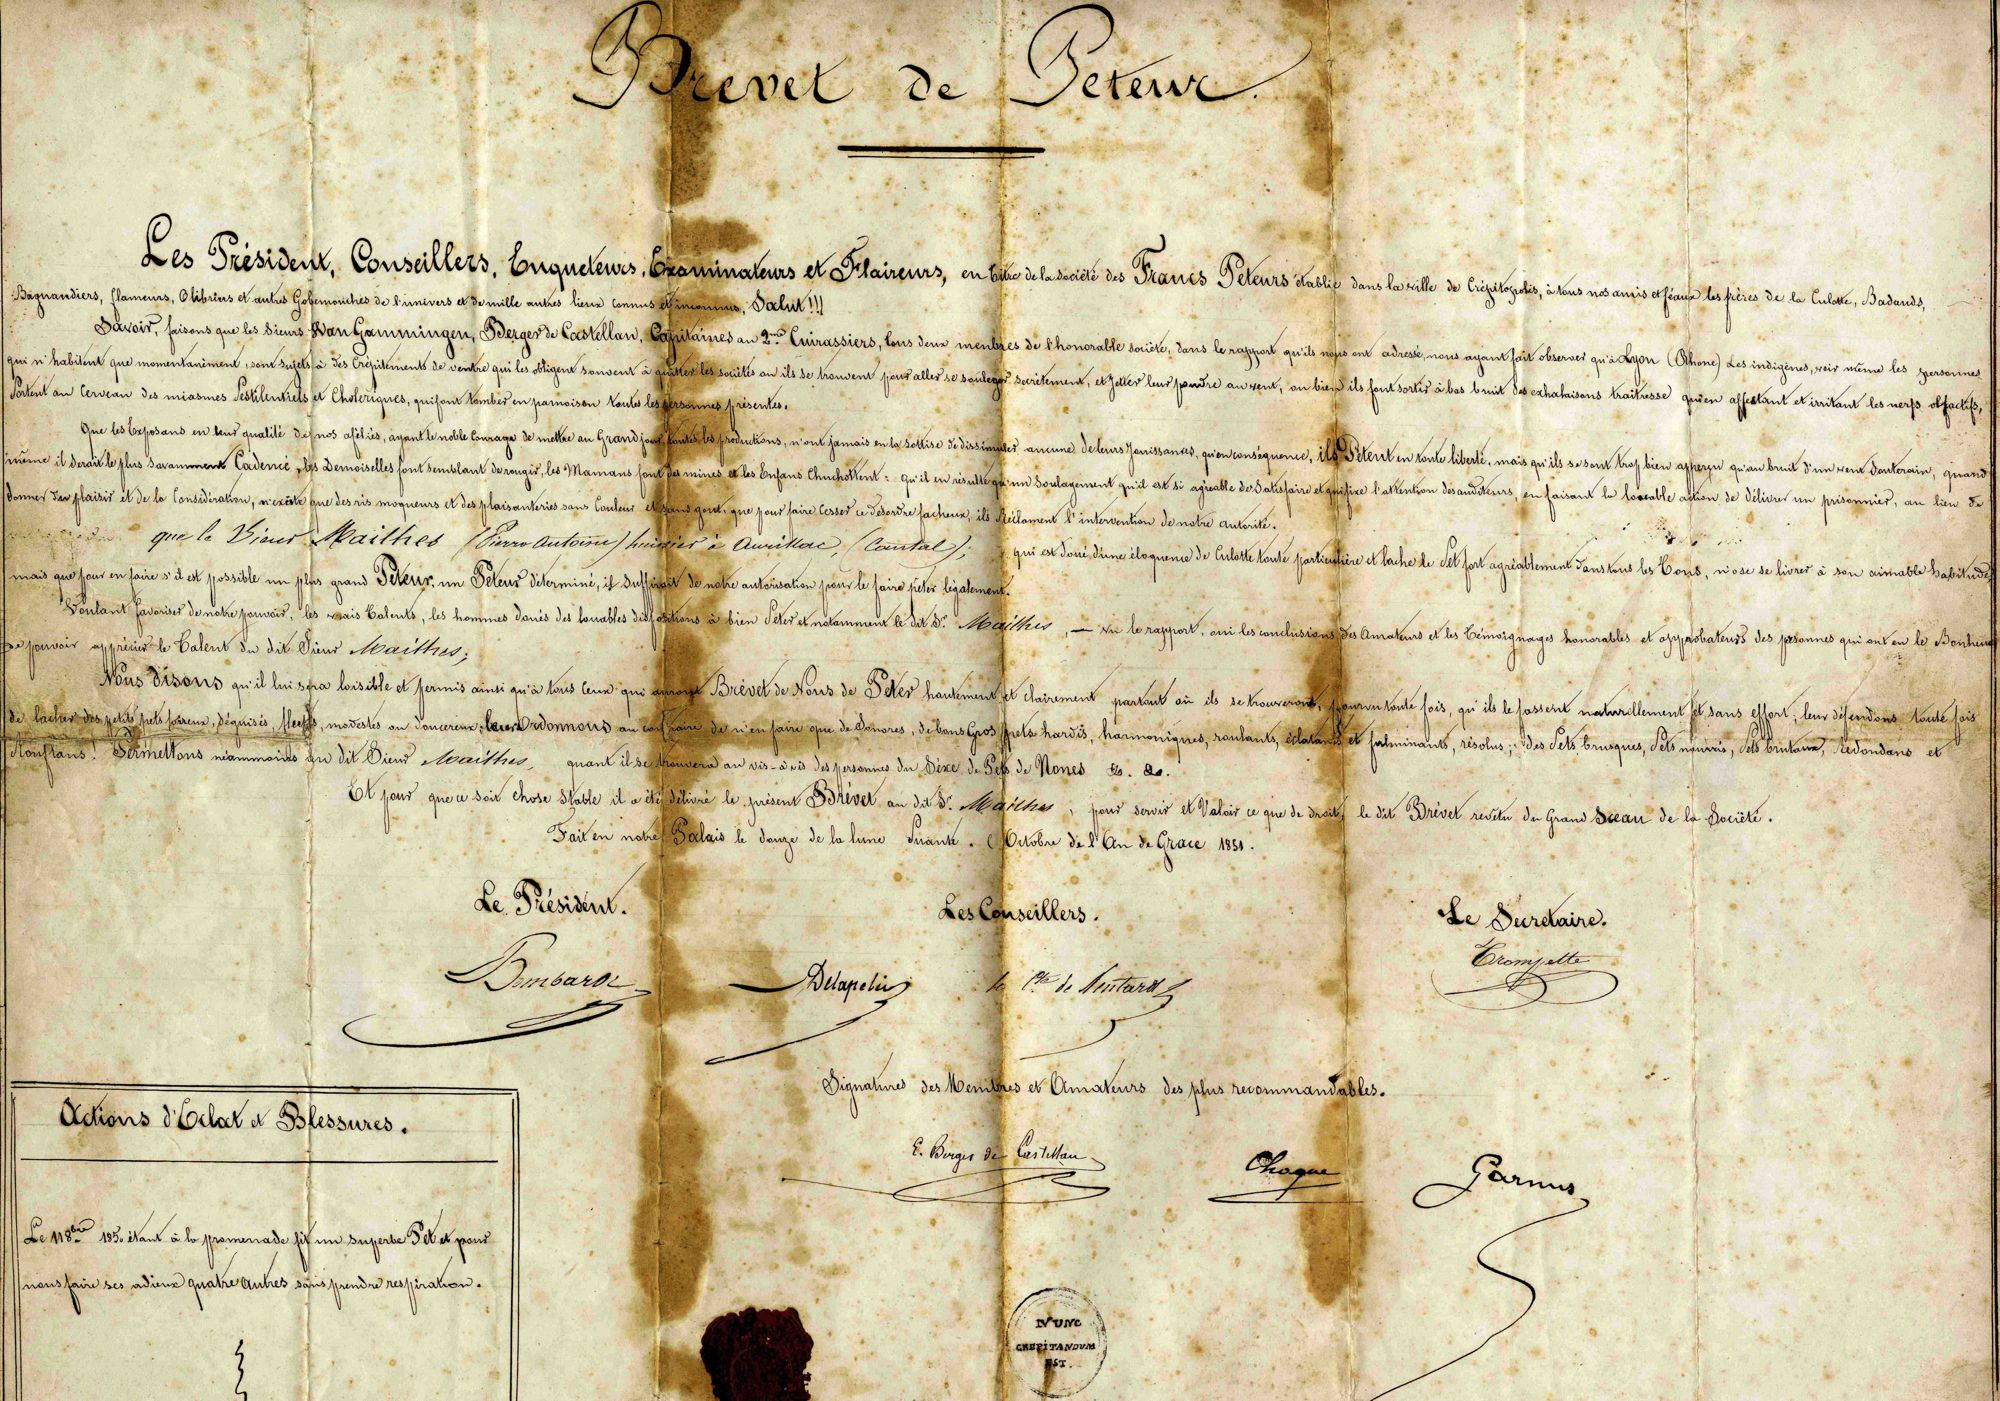 Brevet de Peteur.
Les Président, Conseillers, Enqueteurs, Examinateurs et Flaireurs, en titre de la société des Francs Peteurs établie dans la ville de Crépitopolis, à tous nos amis et féaux les frères de la Culotte, Badauds,
Baguandiers, flameurs, Olibrius et autres Gobemouches de l'univers et de mille autres lieux connus et inconnus, Salut!!!
Savoir, faisons que les Sieurs Van Gammingen, Berger de Castellan, Capitaines au 2me Cuirassiers, tous deux membres de l'honorable société, dans le rapport qu'ils nous ont adressé, nous ayant fait observer qu'à Lyon (Rhone) Les indigènes, voir même les personnes
qui n'habitent que momentanément, sont sujets à des Crépitements de ventre qui les obligent souvent à quitter les sociétés ou ils se trouvent pour aller se soulager secrètement, et jetter leur poudre au vent, ou bien ils font sortir à bas bruit des exhalaisons traîtresse qui en affectant et irritant les nerfs olfactifs,
Portent au Cerveau des miasmes Pestilentiels et Cholériques, qui font tomber en pamoison toutes les personnes présentes.
Que les Exposans en leur qualité de nos afiliés, ayant le noble Courage de mettre au Grand jour toutes les productions, n'ont jamais eu la Sottise de dissimuler aucune de leurs Jouissances, qu'en conséquence, ils Pètent en toute liberté, mais qu'ils se sont trop bien apperçu qu'au bruit d'un vent Souterain, quand
même il serait le plus savamment Cadencé, les Demoiselles font semblant de rougir, les Mamans font des mines et les Enfans Chuchottent: qu'il en résulte qu'un Soulagement qu'il est si agréable de Satisfaire et qui fixe l'attention des auditeurs, en faisant la louable action de délivrer un prisonnier, au lieu de
donner du plaisir et de la Considération, n'excite que des ris moqueurs et des plaisanteries sans Couleur et sans gout, que pour faire Cesser ce désordre facheux, ils Réclament l'intervention de notre autorité.
que le Sieur Maithes (Pierre Antoine) huissier à Aurillac, (Cantal); qui est doué d'une éloquence de Culotte toute particulière et lache le Pet fort agréablement dans tous les Tons, n'ose se livrer à son aimable habitude,
mais que pour en faire s'il est possible un plus grand Peteur, un Peteur déterminé, il Suffirait de notre autorisation pour le faire péter légalement.
Voulant favoriser de notre pouvoir, les vrais talents, les hommes doués des louables dispositions à bien Péter et notamment le dit Sr. Maithes, — vu le rapport, oui les conclusions des Amateurs et les témoignages honorables et approbateurs des personnes qui ont eu le Bonheur
de pouvoir apprécier le talent du dit Sieur Maithes;
Nous Disons qu'il lui sera loisible et permis ainsi qu'à tous Ceux qui auront Brévet de Nous de Péter hautement et clairement partout où ils se trouveront, pourvu toute fois, qu'ils le fassent naturellement et sans effort, leur défendons toute fois
de lacher des petits pets foireux, déguisés, modestes ou doucereux, leur ordonnons au contraire de n'en faire que de Sonores, de bons Gros pets hardis, harmoniques, roulants, éclatants et fulminants, résolus, des Pets brusques, Pets nourris, Pets brutaux, redondans et
ronflans! Permettons néammoins au dit Sieur Maithes, quant il se trouvera au vis-à-vis des personnes du Sèxe de Pets de Nones &. &.
Et pour que ce soit chose stable il a été délivré le présent Brévet au dit Sr. Maithes, pour servir et Valoir ce que de droit, le dit Brévet revêtu du Grand Sceau de la Société.
Fait en notre Palais le douze de la lune Puante. (Octobre de l'An de Grace 1851.
Le Président. Les Conseillers. Le Secretaire.
Bombarde Délapétir le Cte de Trompette
Signatures des Membres et Amateurs des plus recommandables.
E. Berger de Castellan Choque Garnus
Actions d'Eclat et Blessures.
Le 11 8bre 1850 étant à la promenade fit un superbe Pet et pour
nous faire ses adieux quatre autres sans prendre respiration.
NUNC
CREPITANDUM
EST.